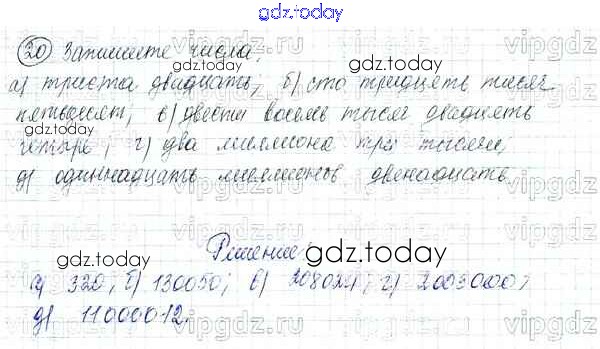 gdz.today
20 Запишите числа:
а) триста двадцать; б) сто тридцать тысяч
пятьдесят; в) двести восемь тысяч двадцать
четыре; г) два миллиона три тысячи;
д) одиннадцать миллионов двенадцать
Решение:
gdz.today
а) 320; б) 130050; в) 208024; г) 2003000;
д) 11000012.